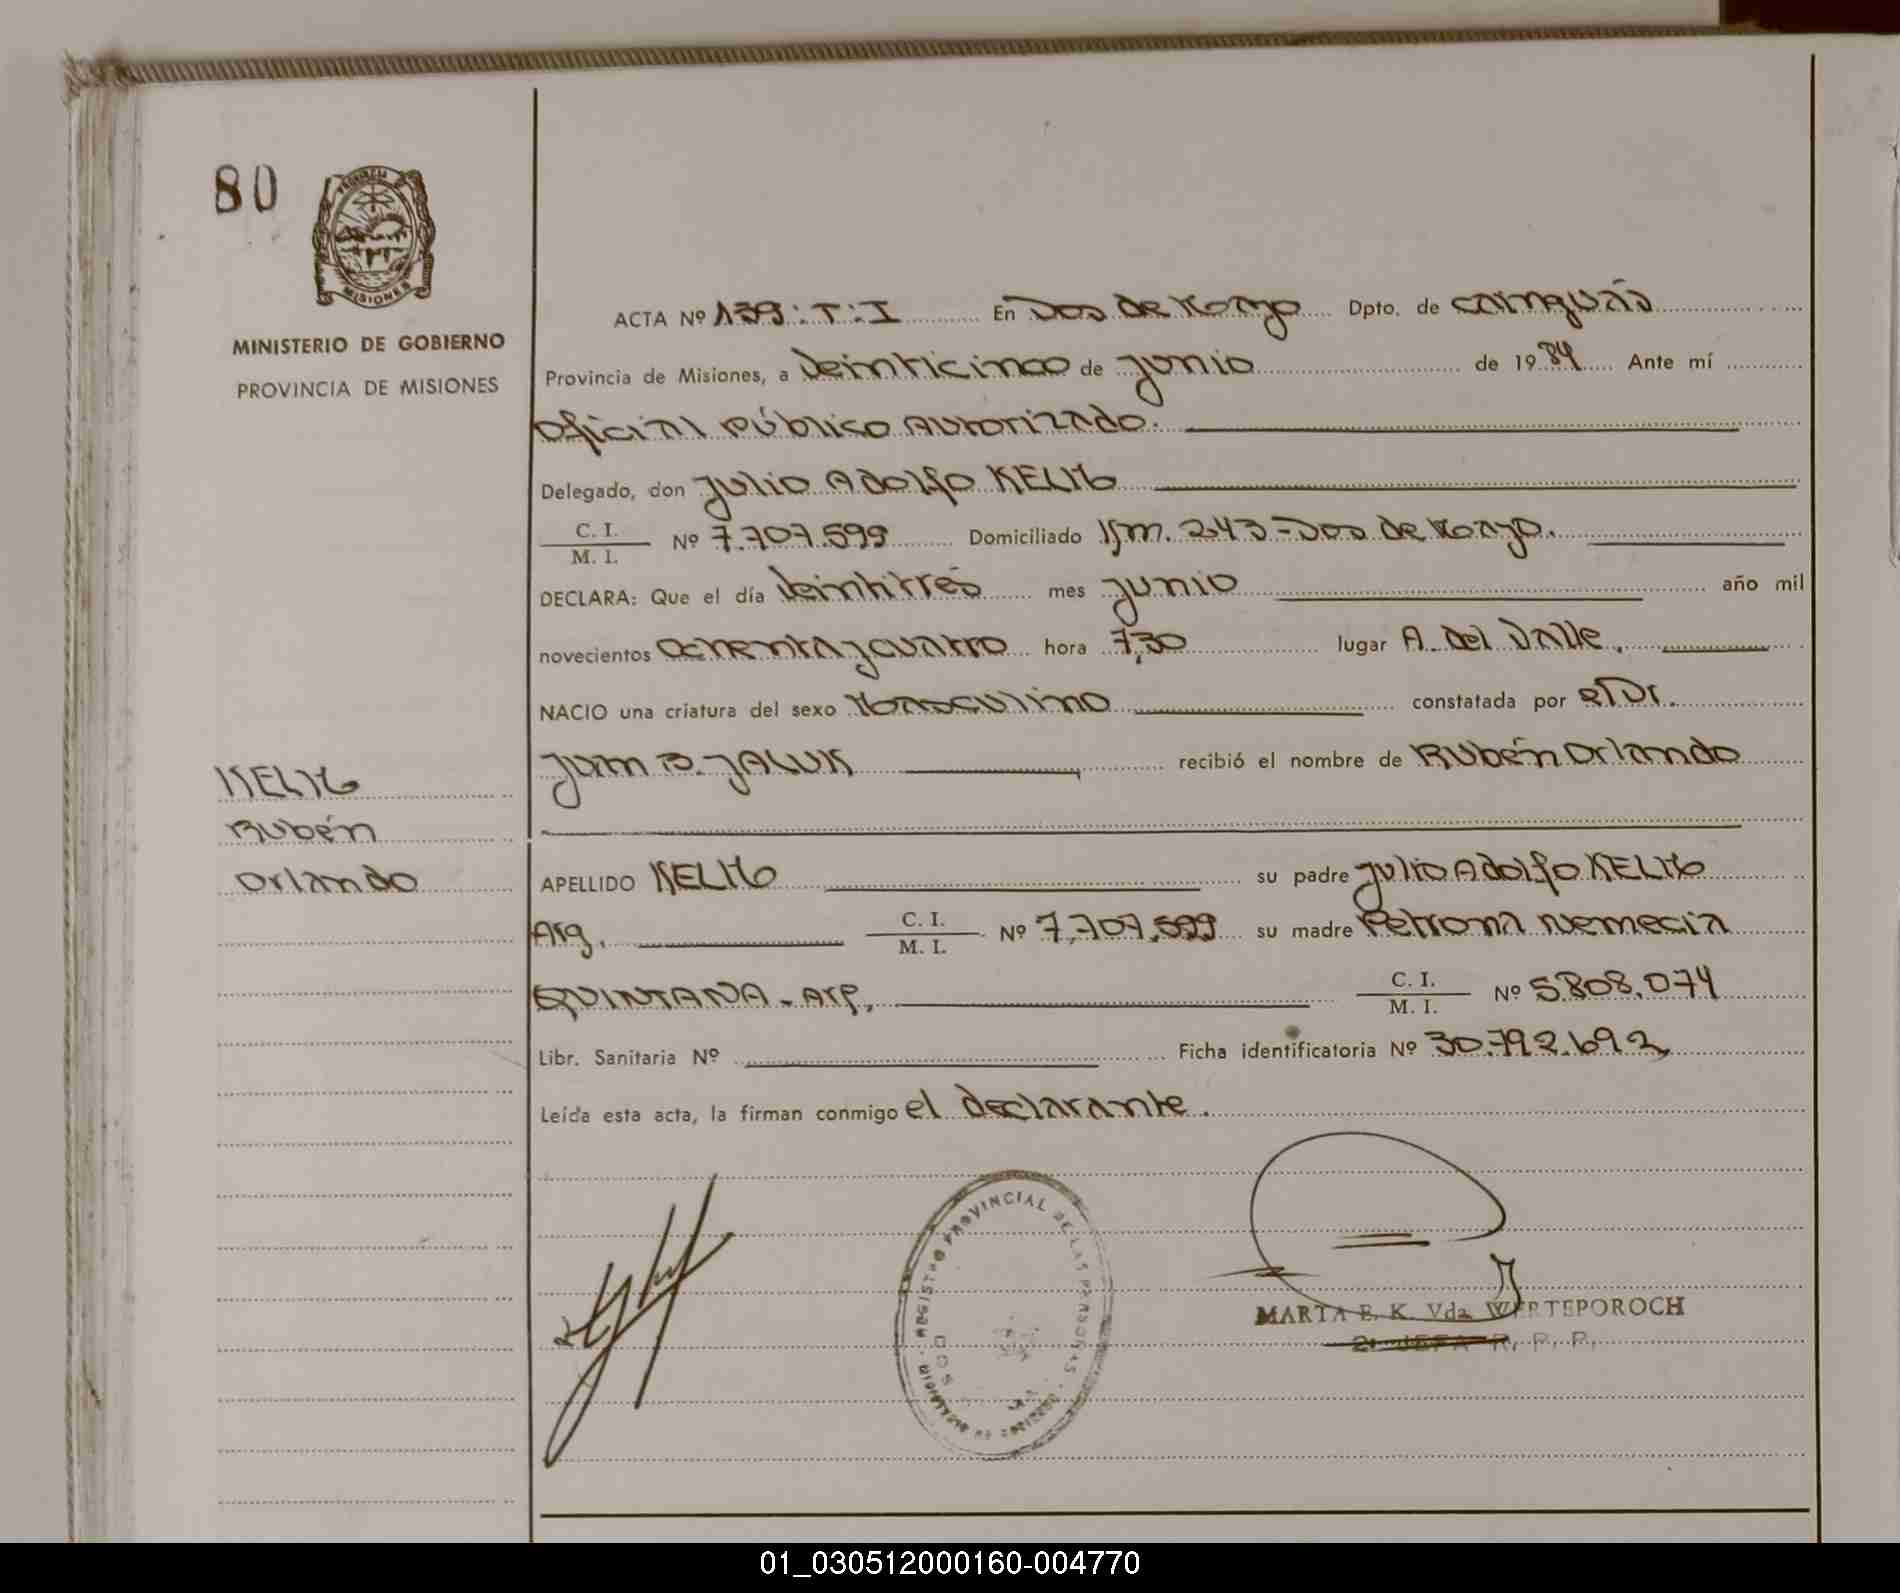 80
PROVINCIA DE
MISIONES
MINISTERIO DE GOBIERNO
PROVINCIA DE MISIONES
ACTA Nº 139:T:I En Dos de Mayo Dpto. de Cainguás
Provincia de Misiones, a veinticinco de junio de 1984 Ante mí
Oficial Público Autorizado.
Delegado, don Julio Adolfo KELM
C. I.
M. I. Nº 7.707.599 Domiciliado Km. 243-Dos de Mayo.
DECLARA: Que el día veintitrés mes junio año mil
novecientos ochenta y cuatro hora 7,30 lugar A. del Valle,
NACIO una criatura del sexo Masculino constatada por el Dr.
Juan B. JALUK recibió el nombre de Rubén Orlando
KELM
Rubén
Orlando
APELLIDO KELM su padre Julio Adolfo KELM
Arg. C. I.
M. I. Nº 7.707.599 su madre Petrona Nemecia
QUINTANA - Arg. C. I.
M. I. Nº 5808.074
Libr. Sanitaria Nº Ficha identificatoria Nº 30.792.692
Leída esta acta, la firman conmigo el declarante.
REGISTRO PROVINCIAL DE LAS PERSONAS
MARTA E. K. Vda. WERTEPOROCH
2º JEFA R. P. P.
01_030512000160-004770